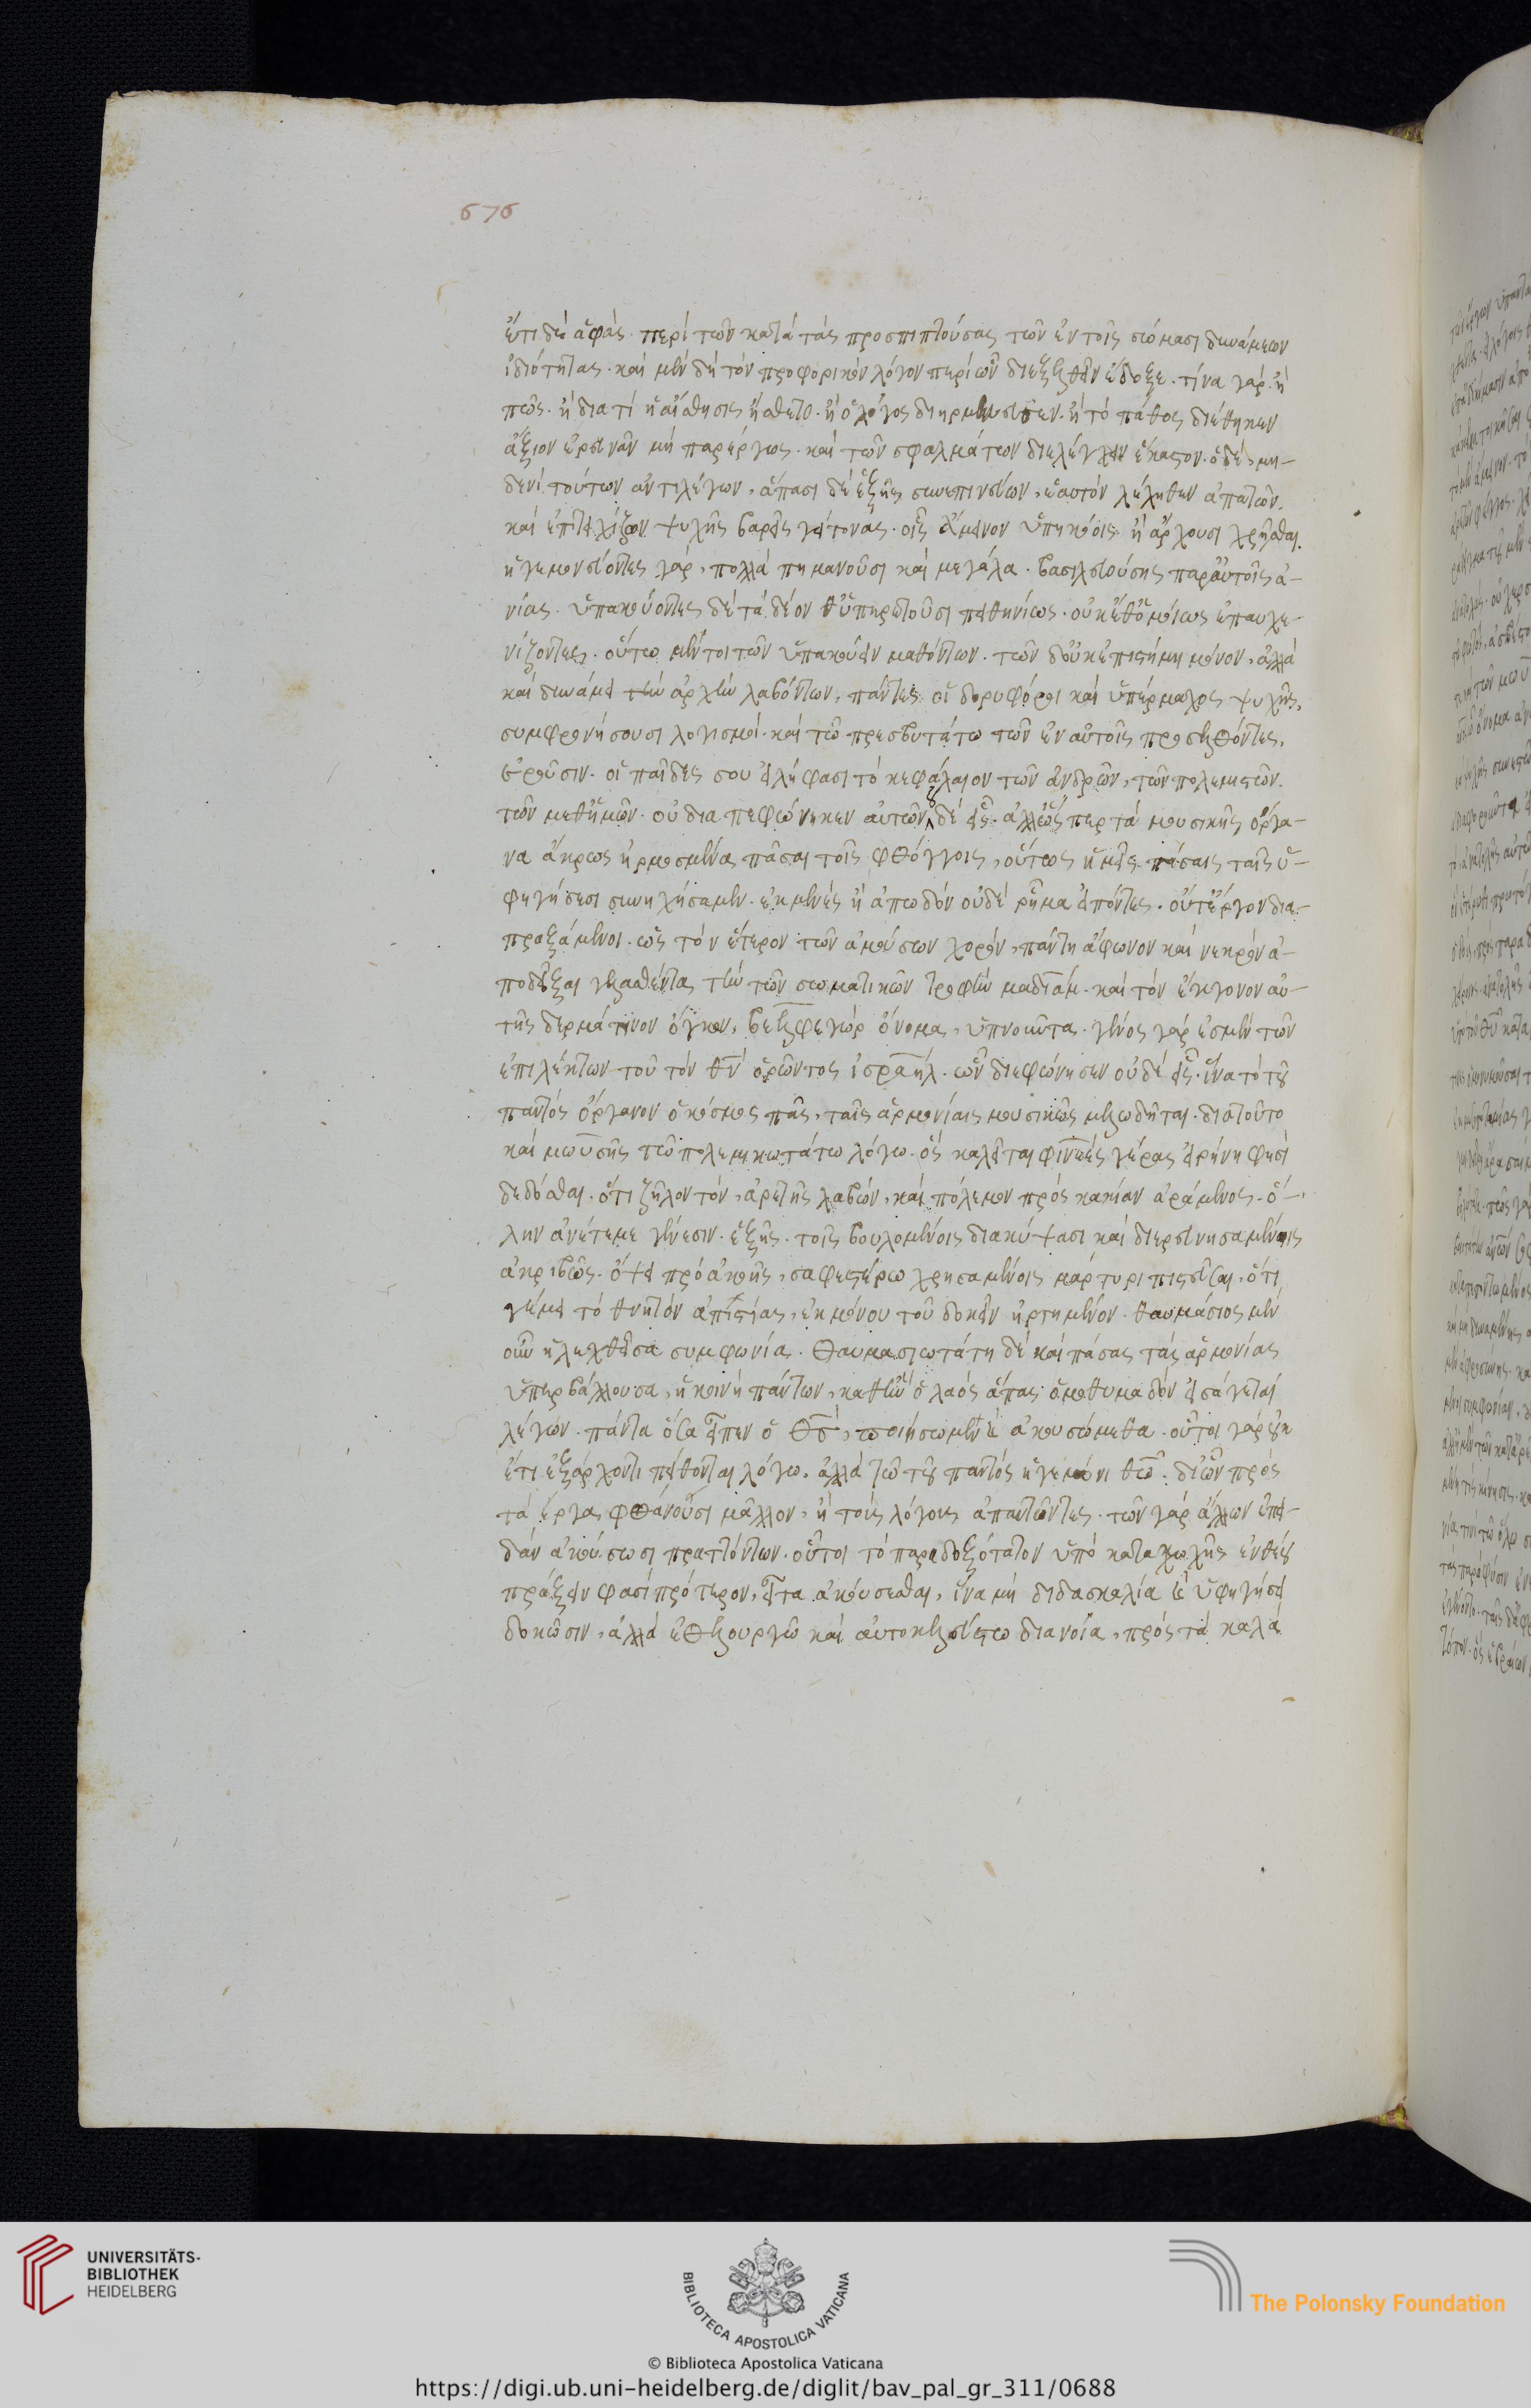 676
ἔτι δὲ ἁφὰς. περὶ τῶν κατὰ τὰς προσπιπτούσας τῶν ἐν τοῖς σώμασι δυνάμεων
ἰδιότητας. καὶ μὲν δὴ τὸν προφορικὸν λόγον περὶ ὧν διεξελθεῖν ἔδοξε. τίνα γάρ. ἢ
πῶς. ἢ διατί ἡ αἴσθησις ᾔσθετο. ἢ ὁ λόγος διηρμήνευσεν. ἢ τὸ πάθος διέθηκεν
ἄξιον ἐρευνᾶν μὴ παρέργως. καὶ τῶν σφαλμάτων διελέγχειν ἕκαστον. ὁ δὲ, μη-
δενὶ τούτων ἀντιλέγων, ἅπασι δὲ ἑξῆς συνεπινεύων, ἑαυτὸν λέληθεν ἀπατῶν.
καὶ ἐπιτειχίζων ψυχῆς βαρεῖς γείτονας. οἷς ἄμεινον ὑπηκόοις ἢ ἄρχουσι χρῆσθαι.
ἡγεμονεύοντες γὰρ, πολλὰ πημανοῦσι καὶ μεγάλα. βασιλευούσης παρ' αὐτοῖς ἀ-
νίας. ὑπακούοντες δὲ τὰ δέονθ' ὑπηρετοῦσι πειθηνίως. οὐκέθ' ὁμοίως ἐπαυχε-
νίζοντες. οὕτω μέντοι τῶν ὑπακούειν μαθόντων. τῶν δ' οὐκ ἐπιστήμῃ μόνον, ἀλλὰ
καὶ δυνάμει τὴν ἀρχὴν λαβόντων, πάντες οἱ δορυφόροι καὶ ὑπέρμαχοι ψυχῆς,
συμφρονήσουσι λογισμοί. καὶ τῷ πρεσβυτάτῳ τῶν ἐν αὐτοῖς προσελθόντες,
ἐροῦσιν. οἱ παῖδές σου εἰλήφασι τὸ κεφάλαιον τῶν ἀνδρῶν, τῶν πολεμιστῶν.
τῶν μεθ' ἡμῶν. οὐ διαπεφώνηκεν αὐτῶν οὐδὲ εἷς. ἀλλ' ὥσπερ τὰ μουσικῆς ὄργα-
να ἄκρως ἡρμοσμένα πᾶσι τοῖς φθόγγοις, οὕτως ἡμεῖς πάσαις ταῖς ὑ-
φηγήσεσι συνηχήσαμεν. ἐκμελὲς ἢ ἀπῳδὸν οὐδὲ ῥῆμα εἰπόντες. οὔτ' ἔργον δια-
πραξάμενοι. ὡς τὸν ἕτερον τῶν ἀμούσων χορὸν, πάντη ἄφωνον καὶ νεκρὸν ἀ-
ποδεῖξαι γελασθέντα, τὴν τῶν σωματικῶν τροφὴν μαδιὰμ. καὶ τὸν ἔκγονον αὐ-
τῆς δερμάτινον ὄγκον, βεελφεγὼρ ὄνομα, ὑπνοῦντα. γένος γάρ ἐσμεν τῶν
ἐπιλέκτων τοῦ τὸν θν ὁρῶντος ἰσραήλ. ὧν διεφώνησεν οὐδὲ εἷς. ἵνα τὸ τοῦ
παντὸς ὄργανον ὁ κόσμος πᾶς, ταῖς ἁρμονίαις μουσικῶς μελῳδῆται. διατοῦτο
καὶ μωυσῆς τῷ πολεμικωτάτῳ λόγῳ. ὃς καλεῖται φινεὲς γέρας εἰρήνην φησὶ
δεδόσθαι. ὅτι ζῆλον τὸν, ἀρετῆς λαβὼν, καὶ πόλεμον πρὸς κακίαν ἀράμενος. ὅ-
λην ἀνέτεμε γένεσιν. ἑξῆς. τοῖς βουλομένοις διακύψασι καὶ διερευνησαμένοις
ἀκριβῶς. ὄψει πρὸ ἀκοῆς, σαφεστέρῳ χρησαμένοις μάρτυρι πιστεῦσαι, ὅτι
γέμει τὸ θνητὸν ἀπιστίας, ἐκ μόνου τοῦ δοκεῖν ἠρτημένον. θαυμάσιος μὲν
οὖν ἡ λεχθεῖσα συμφωνία. θαυμασιωτάτη δὲ καὶ πάσας τὰς ἁρμονίας
ὑπερβάλλουσα, ἡ κοινὴ πάντων, καθ' ἣν ὁ λαὸς ἅπας ὁμοθυμαδὸν εἰσάγεται
λέγων. πάντα ὅσα εἶπεν ὁ θσ, ποιήσωμεν καὶ ἀκουσώμεθα. οὗτοι γὰρ οὐκ
ἔτι ἐξάρχοντι πείθονται λόγῳ. ἀλλὰ τῷ τοῦ παντὸς ἡγεμόνι θῶ. δι' ὃν πρὸς
τὰ ἔργα φθάνουσι μᾶλλον, ἢ τοὺς λόγους ἀπαντῶντες. τῶν γὰρ ἄλλων ἐπει-
δὰν ἀκούσωσι πραττόντων. οὗτοι τὸ παραδοξότατον ὑπὸ κατακωχῆς ἐνθέου
πράξειν φασὶ πρότερον, εἶτα ἀκούσεσθαι, ἵνα μὴ διδασκαλίᾳ καὶ ὑφηγήσει
δοκῶσιν, ἀλλὰ ἐθελουργῷ καὶ αὐτοκελεύστῳ διανοίᾳ, πρὸς τὰ καλὰ
UNIVERSITÄTS-
BIBLIOTHEK
HEIDELBERG
BIBLIOTECA APOSTOLICA VATICANA
The Polonsky Foundation
© Biblioteca Apostolica Vaticana
https://digi.ub.uni-heidelberg.de/diglit/bav_pal_gr_311/0688